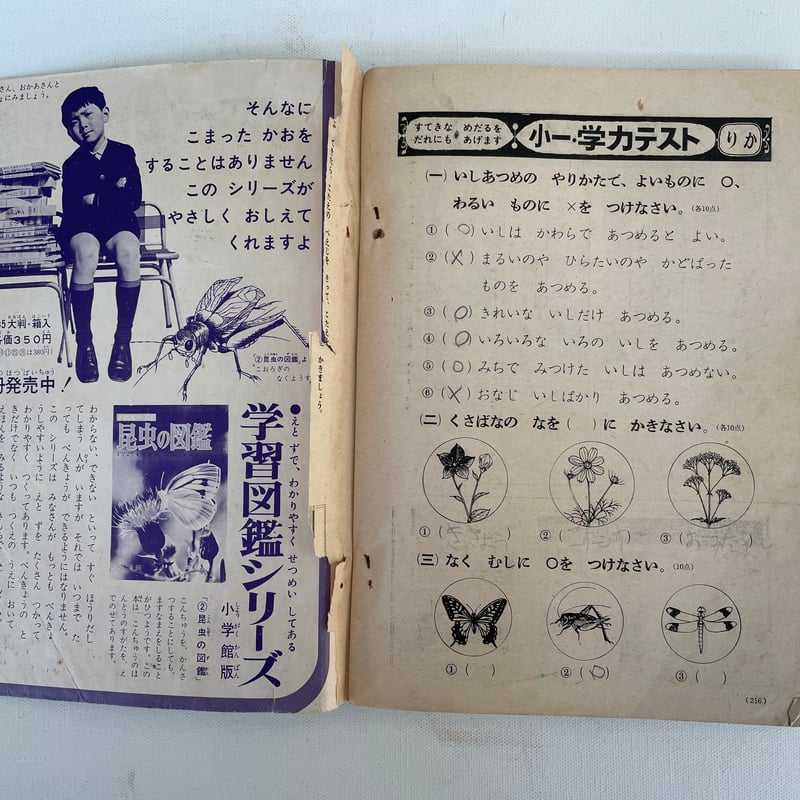 さん、おかあさんと
にみましょう。
そんなに
こまった かおを
することはありません
この シリーズが
やさしく おしえて
くれますよ
B5大判・箱入
価350円
はつばいちゅう
発売中！
「②昆虫の図鑑」よ
こおろぎの
なくようす
かきましょう。
●えと ずで、わかりやすく せつめい してある
学習図鑑シリーズ
小学館版
しょうがくかんばん
昆虫の図鑑
「②昆虫の図鑑」
こんちゅうを、かんさ
つすることにしても、
まずなまえをしること
がひつようです。この
本は、こんちゅうのほ
んとうのすがたを、え
でのせてあります。
わからない、できない といって すぐ ほうりだし
てしまう 人が いますが それでは いつまで た
っても べんきょうが できるようにはなりません。
この シリーズは みなさんが もっとも べんきょ
うしやすいように えと ずを たくさん つかって
わかりやすく つくってあります。べんきょうの と
きだけでなく いつも つくえの うえに おいて
すてきな めだるを
だれにも あげます
小一・学力テスト
りか
(一) いしあつめの やりかたで、よいものに ○、
わるい ものに ×を つけなさい。(各10点)
①(○)いしは かわらで あつめると よい。
②(×)まるいのや ひらたいのや かどばった
ものを あつめる。
③(○)きれいな いしだけ あつめる。
④(○)いろいろな いろの いしを あつめる。
⑤(○)みちで みつけた いしは あつめない。
⑥(×)おなじ いしばかり あつめる。
(二) くさばなの なを( )に かきなさい。(各10点)
①( ) ②( ) ③( )
(三) なく むしに ○を つけなさい。(10点)
①( ) ②(○) ③( )
(216)